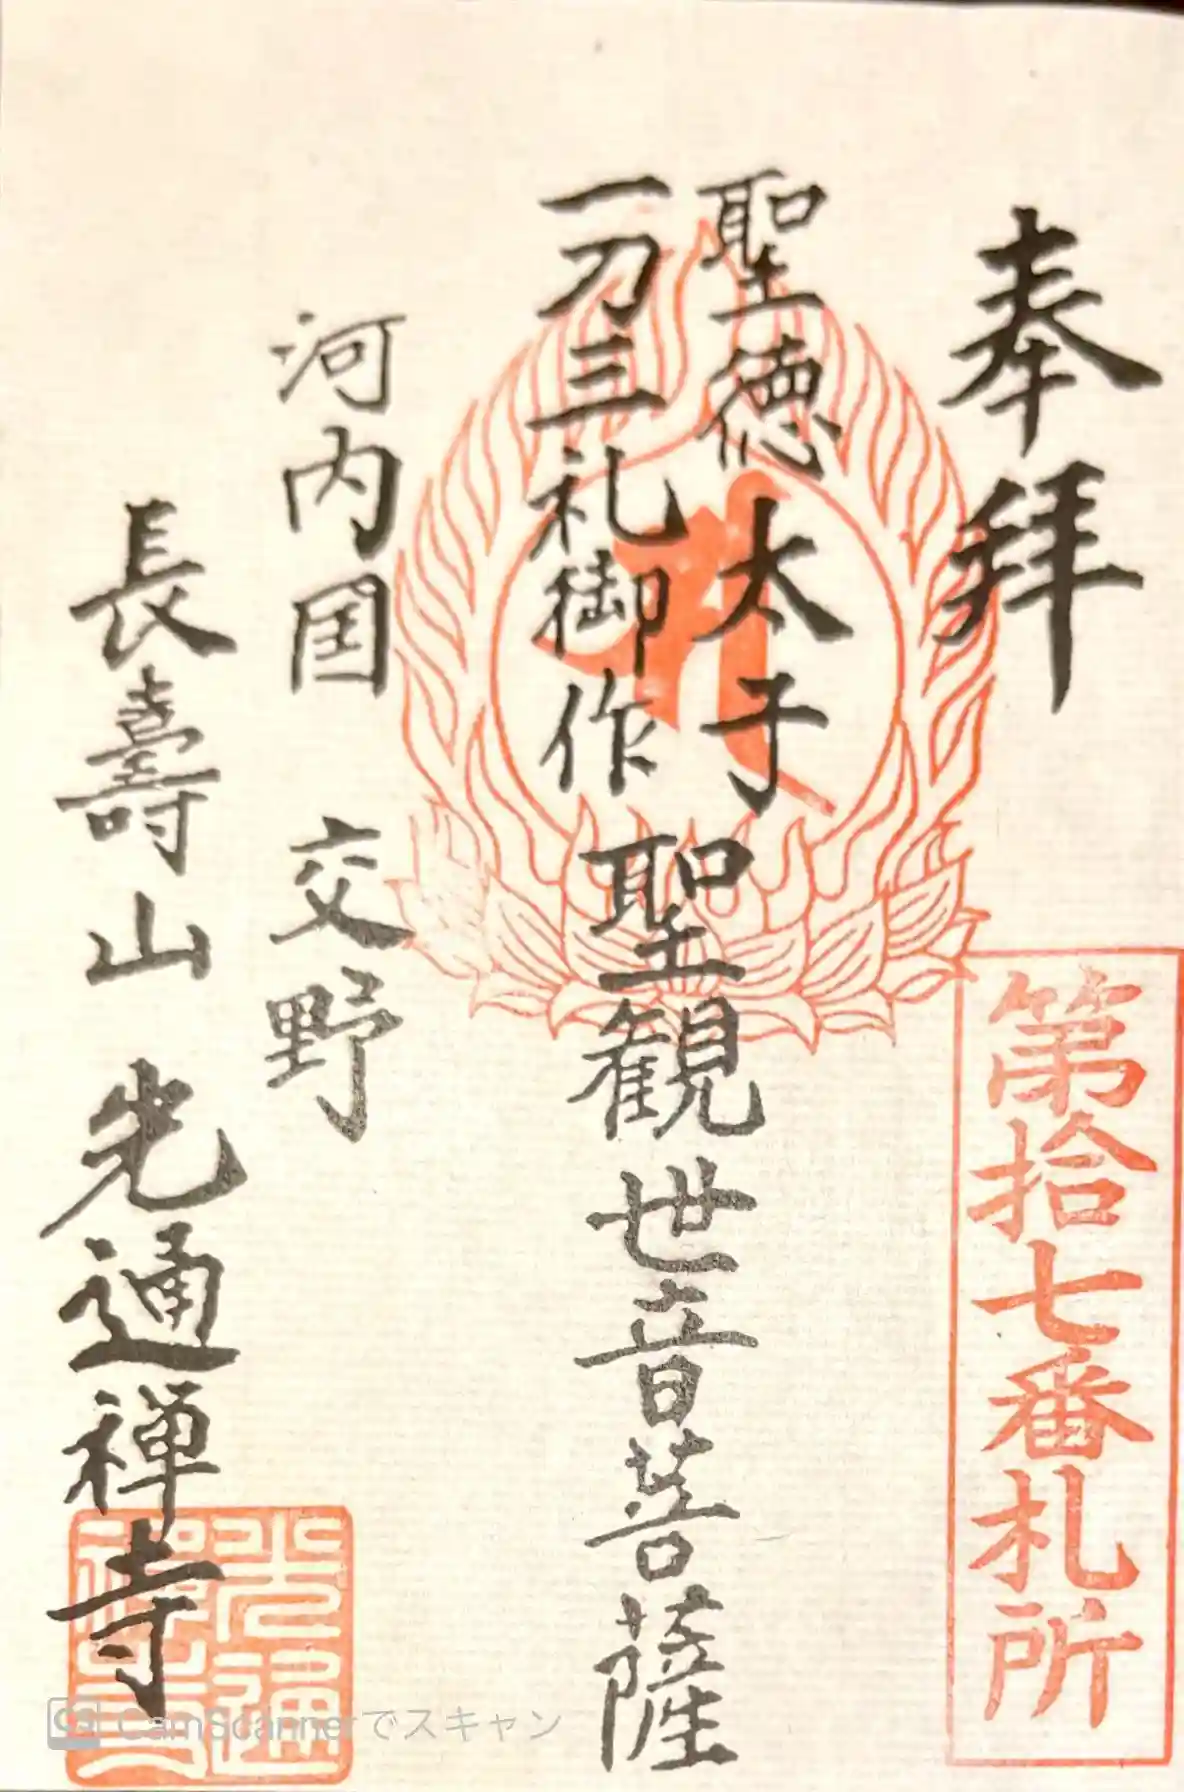 奉拝
第拾七番札所
聖徳太子
一刀三礼御作
聖観世音菩薩
河内国 交野
長壽山 光通禅寺
光通禅寺
CamScannerでスキャン